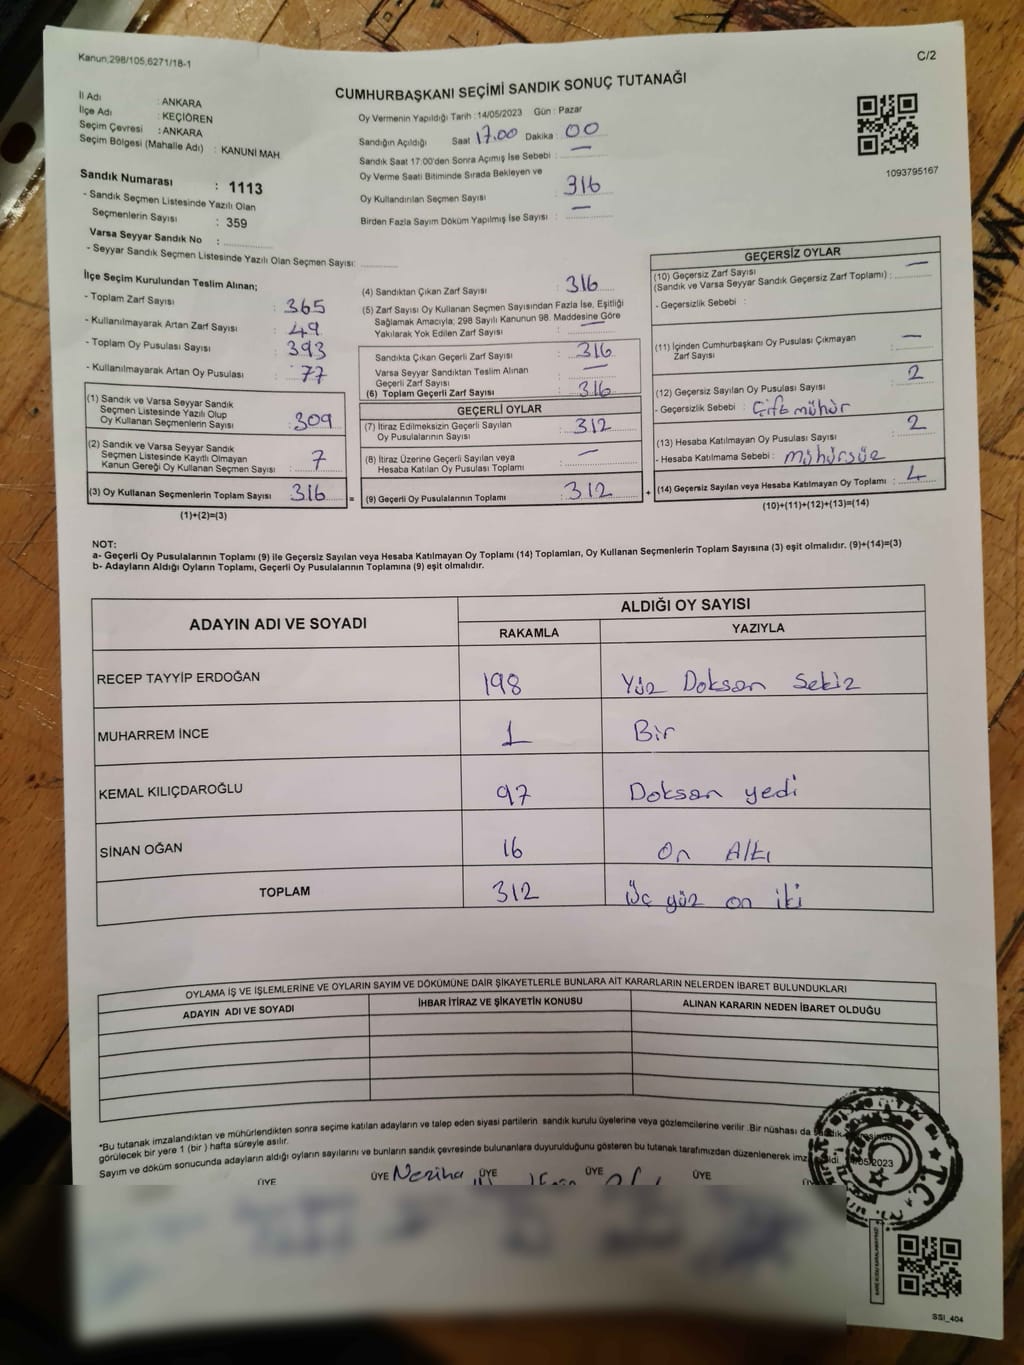 Kanun,298/105,6271/18-1
C/2
CUMHURBAŞKANI SEÇİMİ SANDIK SONUÇ TUTANAĞI
İl Adı : ANKARA
İlçe Adı : KEÇİÖREN
Seçim Çevresi : ANKARA
Seçim Bölgesi (Mahalle Adı) : KANUNİ MAH
Sandık Numarası : 1113
- Sandık Seçmen Listesinde Yazılı Olan
Seçmenlerin Sayısı : 359
Varsa Seyyar Sandık No :
- Seyyar Sandık Seçmen Listesinde Yazılı Olan Seçmen Sayısı:
Oy Vermenin Yapıldığı Tarih : 14/05/2023 Gün : Pazar
Sandığın Açıldığı Saat 17.00 Dakika : 00
Sandık Saat 17:00'den Sonra Açımış İse Sebebi : —
Oy Verme Saati Bitiminde Sırada Bekleyen ve
Oy Kullandırılan Seçmen Sayısı : 316
Birden Fazla Sayım Döküm Yapılmış İse Sayısı : —
1093795167
İlçe Seçim Kurulundan Teslim Alınan;
- Toplam Zarf Sayısı : 365
- Kullanılmayarak Artan Zarf Sayısı : 49
- Toplam Oy Pusulası Sayısı : 393
- Kullanılmayarak Artan Oy Pusulası : 77
(1) Sandık ve Varsa Seyyar Sandık
Seçmen Listesinde Yazılı Olup
Oy Kullanan Seçmenlerin Sayısı : 309
(2) Sandık ve Varsa Seyyar Sandık
Seçmen Listesinde Kayıtlı Olmayan
Kanun Gereği Oy Kullanan Seçmen Sayısı : 7
(3) Oy Kullanan Seçmenlerin Toplam Sayısı : 316 =
(1)+(2)=(3)
(4) Sandıktan Çıkan Zarf Sayısı : 316
(5) Zarf Sayısı Oy Kullanan Seçmen Sayısından Fazla İse, Eşitliği
Sağlamak Amacıyla; 298 Sayılı Kanunun 98. Maddesine Göre
Yakılarak Yok Edilen Zarf Sayısı : —
Sandıkta Çıkan Geçerli Zarf Sayısı : 316
Varsa Seyyar Sandıktan Teslim Alınan
Geçerli Zarf Sayısı : —
(6) Toplam Geçerli Zarf Sayısı : 316
GEÇERLİ OYLAR
(7) İtiraz Edilmeksizin Geçerli Sayılan
Oy Pusulalarının Sayısı : 312
(8) İtiraz Üzerine Geçerli Sayılan veya
Hesaba Katılan Oy Pusulası Toplamı : —
(9) Geçerli Oy Pusulalarının Toplamı : 312 +
GEÇERSİZ OYLAR
(10) Geçersiz Zarf Sayısı
(Sandık ve Varsa Seyyar Sandık Geçersiz Zarf Toplamı) : —
- Geçersizlik Sebebi :
(11) İçinden Cumhurbaşkanı Oy Pusulası Çıkmayan
Zarf Sayısı : —
(12) Geçersiz Sayılan Oy Pusulası Sayısı : 2
- Geçersizlik Sebebi : Çift mühür
(13) Hesaba Katılmayan Oy Pusulası Sayısı : 2
- Hesaba Katılmama Sebebi : mühürsüz
(14) Geçersiz Sayılan veya Hesaba Katılmayan Oy Toplamı : 4
(10)+(11)+(12)+(13)=(14)
NOT:
a- Geçerli Oy Pusulalarının Toplamı (9) ile Geçersiz Sayılan veya Hesaba Katılmayan Oy Toplamı (14) Toplamları, Oy Kullanan Seçmenlerin Toplam Sayısına (3) eşit olmalıdır. (9)+(14)=(3)
b- Adayların Aldığı Oyların Toplamı, Geçerli Oy Pusulalarının Toplamına (9) eşit olmalıdır.
ADAYIN ADI VE SOYADI
ALDIĞI OY SAYISI
RAKAMLA YAZIYLA
RECEP TAYYİP ERDOĞAN 198 Yüz Doksan Sekiz
MUHARREM İNCE 1 Bir
KEMAL KILIÇDAROĞLU 97 Doksan yedi
SİNAN OĞAN 16 On Altı
TOPLAM 312 Üç yüz on iki
OYLAMA İŞ VE İŞLEMLERİNE VE OYLARIN SAYIM VE DÖKÜMÜNE DAİR ŞİKAYETLERLE BUNLARA AİT KARARLARIN NELERDEN İBARET BULUNDUKLARI
ADAYIN ADI VE SOYADI İHBAR İTİRAZ VE ŞİKAYETİN KONUSU ALINAN KARARIN NEDEN İBARET OLDUĞU
"Bu tutanak imzalandıktan ve mühürlendikten sonra seçime katılan adayların ve talep eden siyasi partilerin sandık kurulu üyelerine veya gözlemcilerine verilir .Bir nüshası da
görülecek bir yere 1 (bir ) hafta süreyle asılır.
Sayım ve döküm sonucunda adayların aldığı oyların sayılarını ve bunların sandık çevresinde bulunanlara duyurulduğunu gösteren bu tutanak tarafımızdan düzenlenerek
ÜYE ÜYE Neziha ÜYE ÜYE ÜYE
T.C.
SSI_404